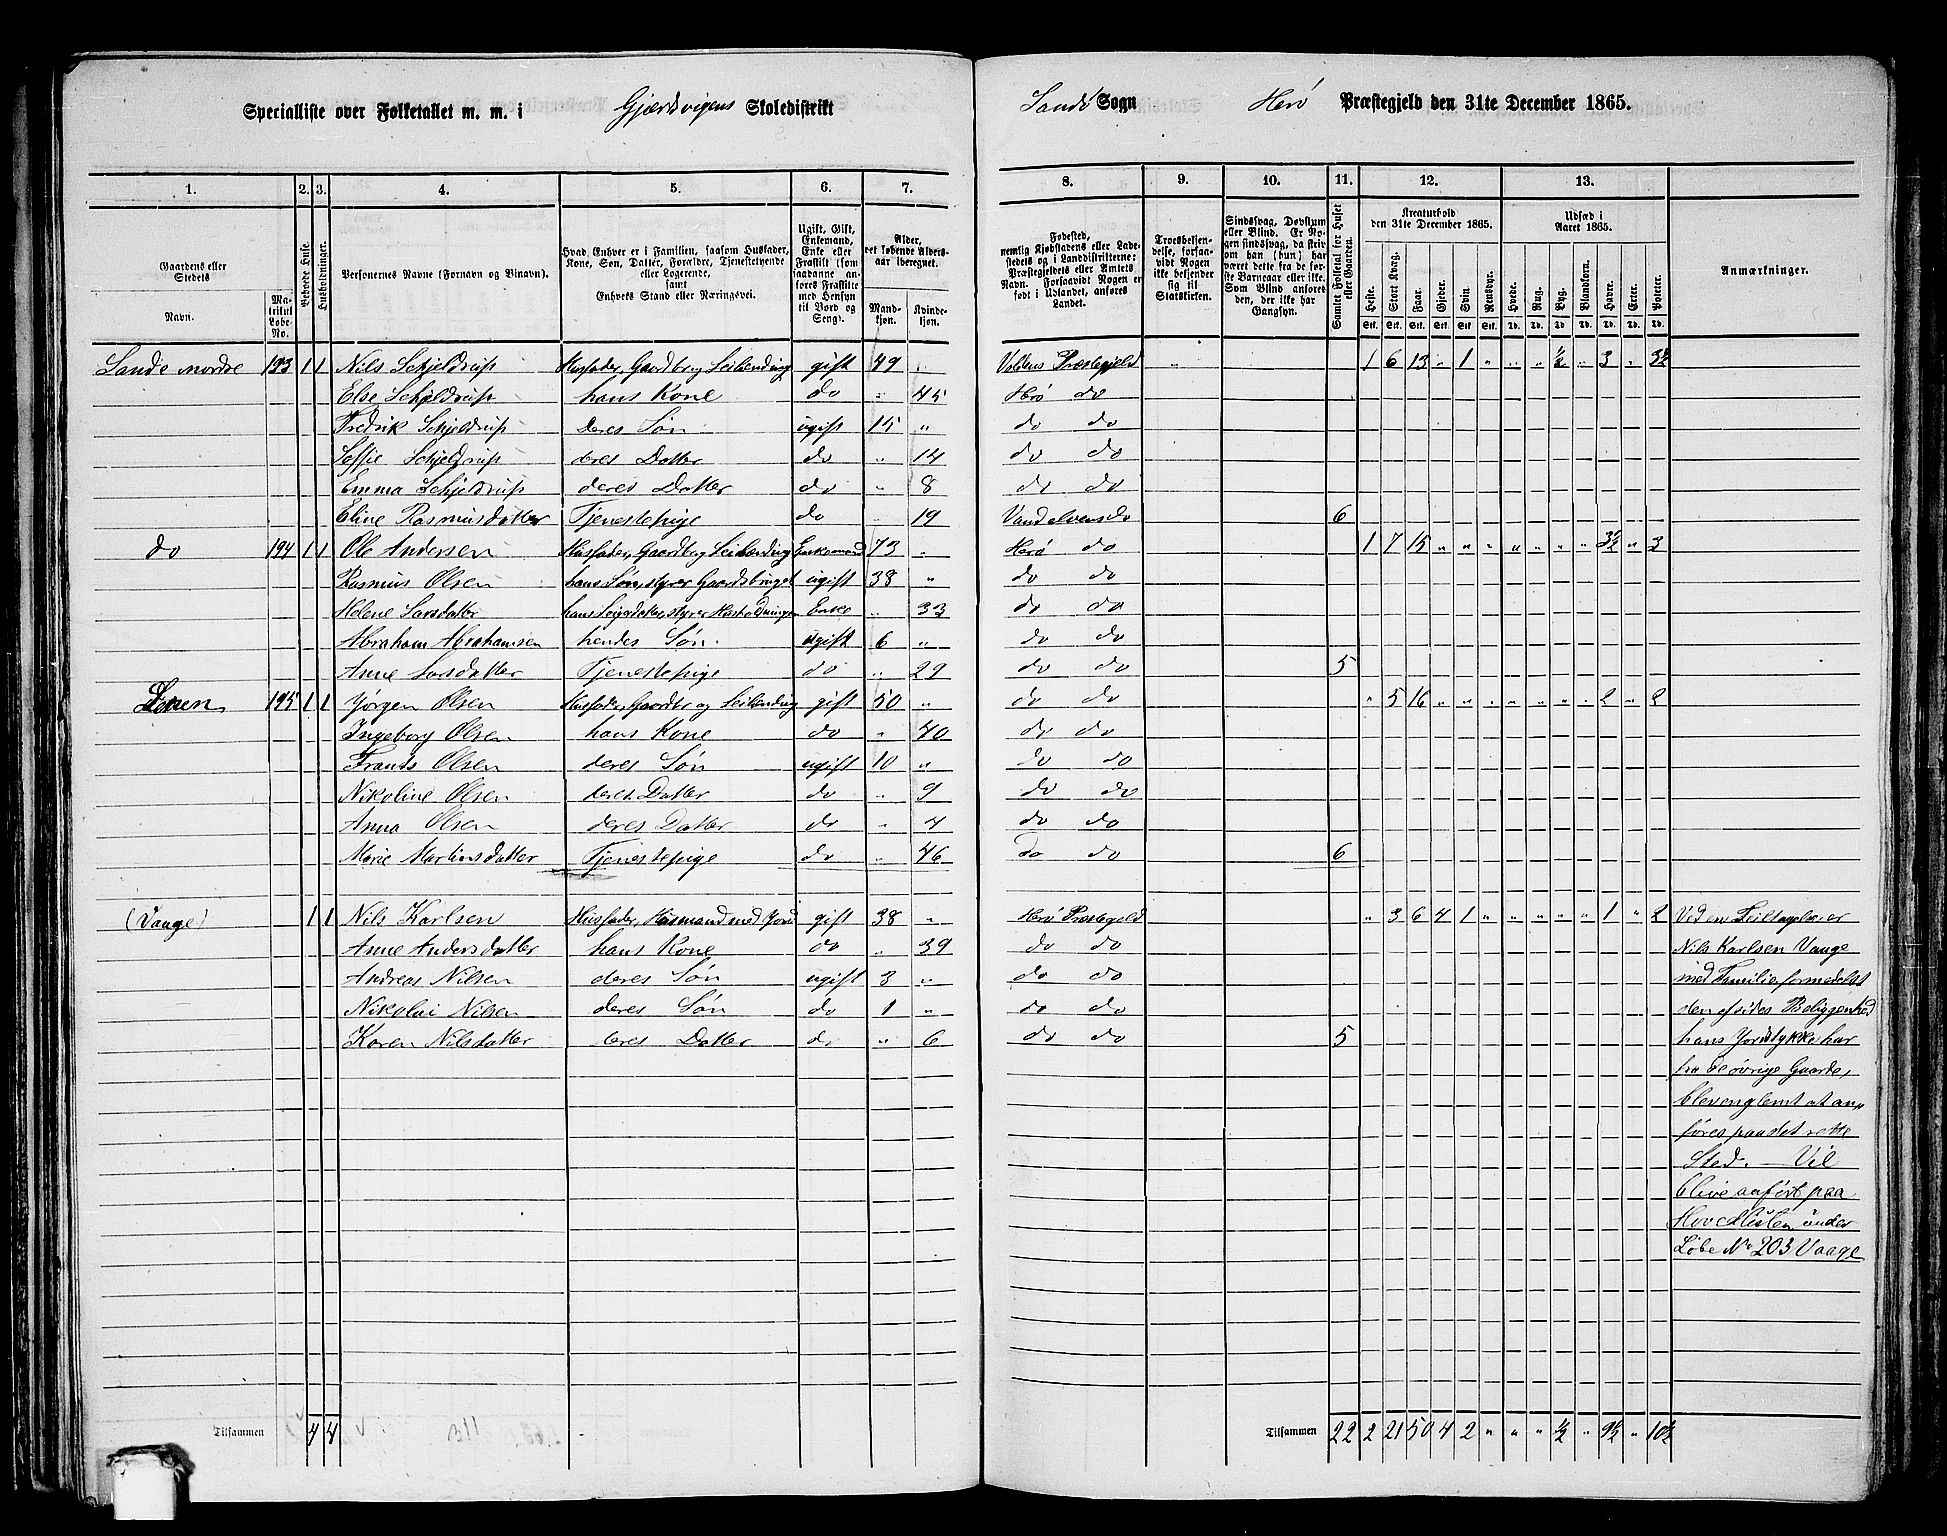 Specialliste over Folketallet m. m. i Gjerdsvigens Skoledistrikt
Sands Sogn Herø Præstegjeld den 31te December 1865.
1. 2. 3. 4. 5. 6. 7. 8. 9. 10. 11. 12. 13.
Gaardens eller Stedets Navn.
Matrikul Løbe-No.
Beboede Huse.
Husholdninger.
Personernes Navne (Fornavn og Binavn).
Hvad Enhver er i Familien, saasom Husfader, Kone, Søn, Datter, Forældre, Tjenestetyende eller Logerende, samt Enhvers Stand eller Næringsvei.
Ugift, Gift, Enkemand, Enke eller Fraskilt (som saadanne anføres Fraskilte med Hensyn til Bord og Seng).
Alder, det løbende Aldersaar iberegnet.
Mandkjøn. Kvindekjøn.
Fødested, nemlig Kjøbstadens eller Ladestedets og i Landdistrikterne: Præstegjeldets eller Amtets Navn. Forsaavidt Nogen er født i Udlandet, anføres Landet.
Troesbekjendelse, forsaavidt Nogen ikke bekjender sig til Statskirken.
Sindssvag, Døvstum eller Blind. Er Nogen sindssvag, da skrives om han (hun) har været dette fra de første Barneaar eller ikke. Som Blind anføres den, der ikke har Gangsyn.
Samlet Folketal for Huset eller Gaarden.
Kreaturhold den 31te December 1865.
Heste. Stort Kvæg. Faar. Gjeder. Svin. Rensdyr.
Udsæd i Aaret 1865.
Hvede. Rug. Byg. Blandkorn. Havre. Erter. Poteter.
Anmærkninger.
Sande nordre 193 1 1 Nils Schjeldrup Husfader, Gaardbr og Leilending gift 49 " Voldens Præstegjeld " 1 6 13 " 1 " " " ½ " 3 " 3½
Else Schjeldrup hans Kone do " 45 Herø do
Fredrik Schjeldrup deres Søn ugift 15 " do do
Soffie Schjeldrup deres Datter do " 14 do do
Emma Schjeldrup deres Datter do " 8 do do
Eline Rasmusdatter Tjenestepige do " 19 Vandelvens do 6
do 194 1 1 Ole Andersen Husfader, Gaardbr og Leilending Enkemand 73 " Herø do 1 7 15 " " " " " " " 3½ " 3
Rasmus Olsen hans Søn, styrer Gaardsbruget ugift 38 " do do
Helene Larsdatter hans , styrer Husholdningen Enke " 33 do do
Abraham Abrahamsen hendes Søn ugift 6 " do do
Anne Larsdatter Tjenestepige do " 29 do do 5
195 1 1 Jørgen Olsen Husfader, Gaardbr og Leilending gift 50 " do do " 5 16 " " " " " " " 2 " 2
Ingeborg Olsen hans Kone do " 40 do do
Frants Olsen deres Søn ugift 10 " do do
Nikoline Olsen deres Datter do " 9 do do
Anna Olsen deres Datter do " 4 do do
Marie Martinsdatter Tjenestepige do " 46 Do do 6
(Vaage) 1 1 Nils Karlsen Husfader, Husmand med Jord gift 38 " Herø Præstegjeld " 3 6 4 1 " " " " " 1 " 2 Ved en Feiltagelse er
Anne Andersdatter hans Kone do " 39 do do Nils Karlsen Vaage
Andreas Nilsen deres Søn ugift 3 " do do med Familie formedelst
Nikolai Nilsen deres Søn do 1 " do do den afsides Beliggenhed
Karen Nilsdatter deres Datter do " 6 do do 5 hans Jordstykke har
fra de øvrige Gaarde,
bleven glemt at an-
føres paa det rette
Sted. — Vil
blive anført paa
under
Løbe No 203 Vaage
Tilsammen 4 4
Tilsammen 22 2 21 50 4 2 " " " ½ " 9½ " 10½